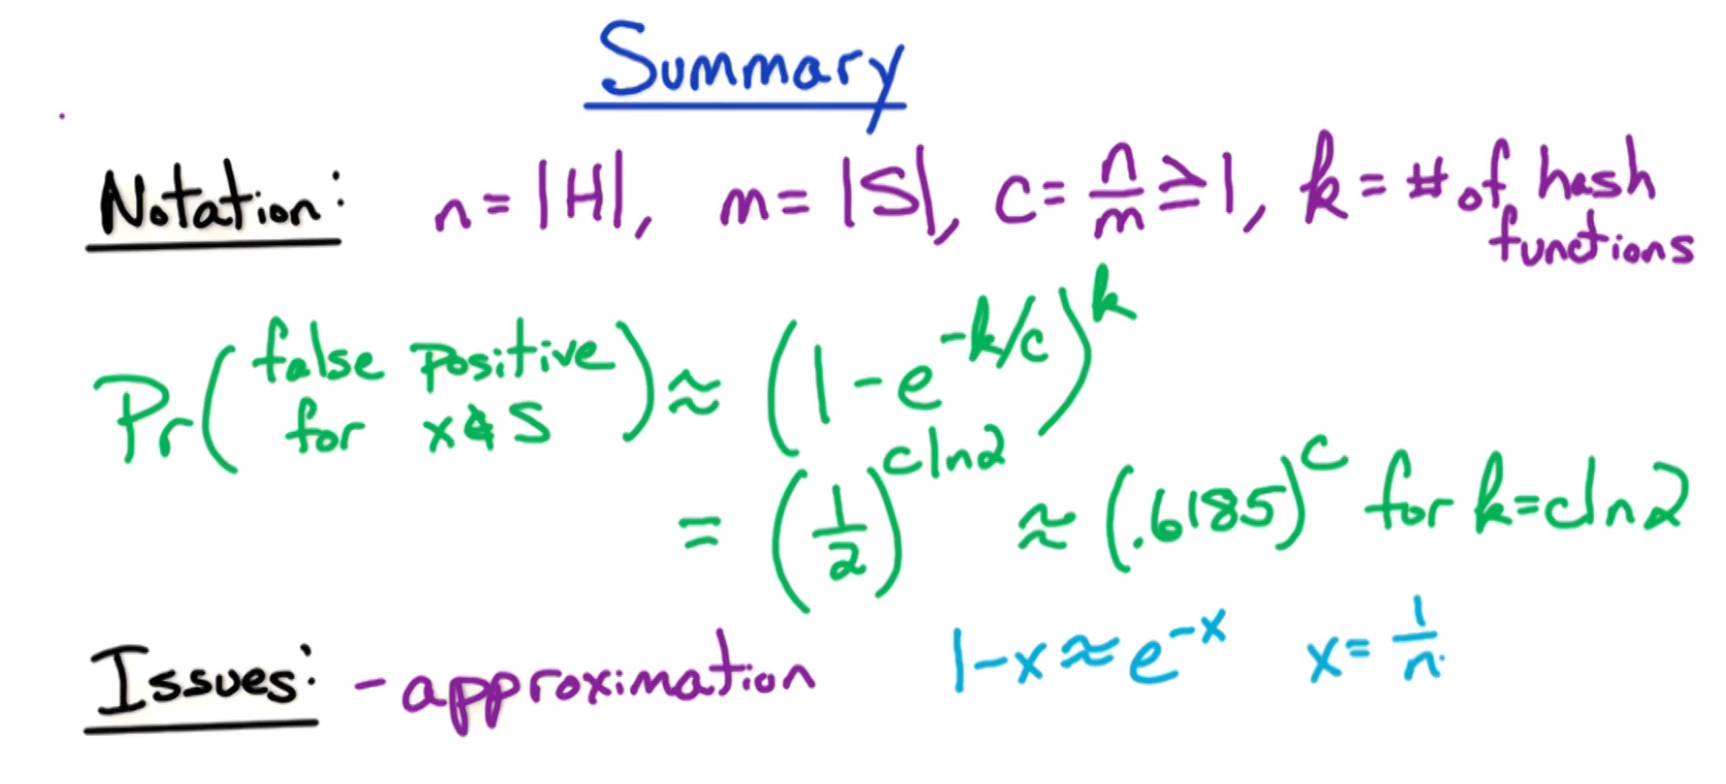 Summary
Notation: n = |H|, m = |S|, c = n/m ≥ 1, k = # of hash functions
Pr(false positive for x∉S) ≈ (1 - e^{-k/c})^k
= (1/2)^{c ln 2} ≈ (.6185)^c for k = c ln 2
Issues: - approximation 1 - x ≈ e^{-x} x = 1/n